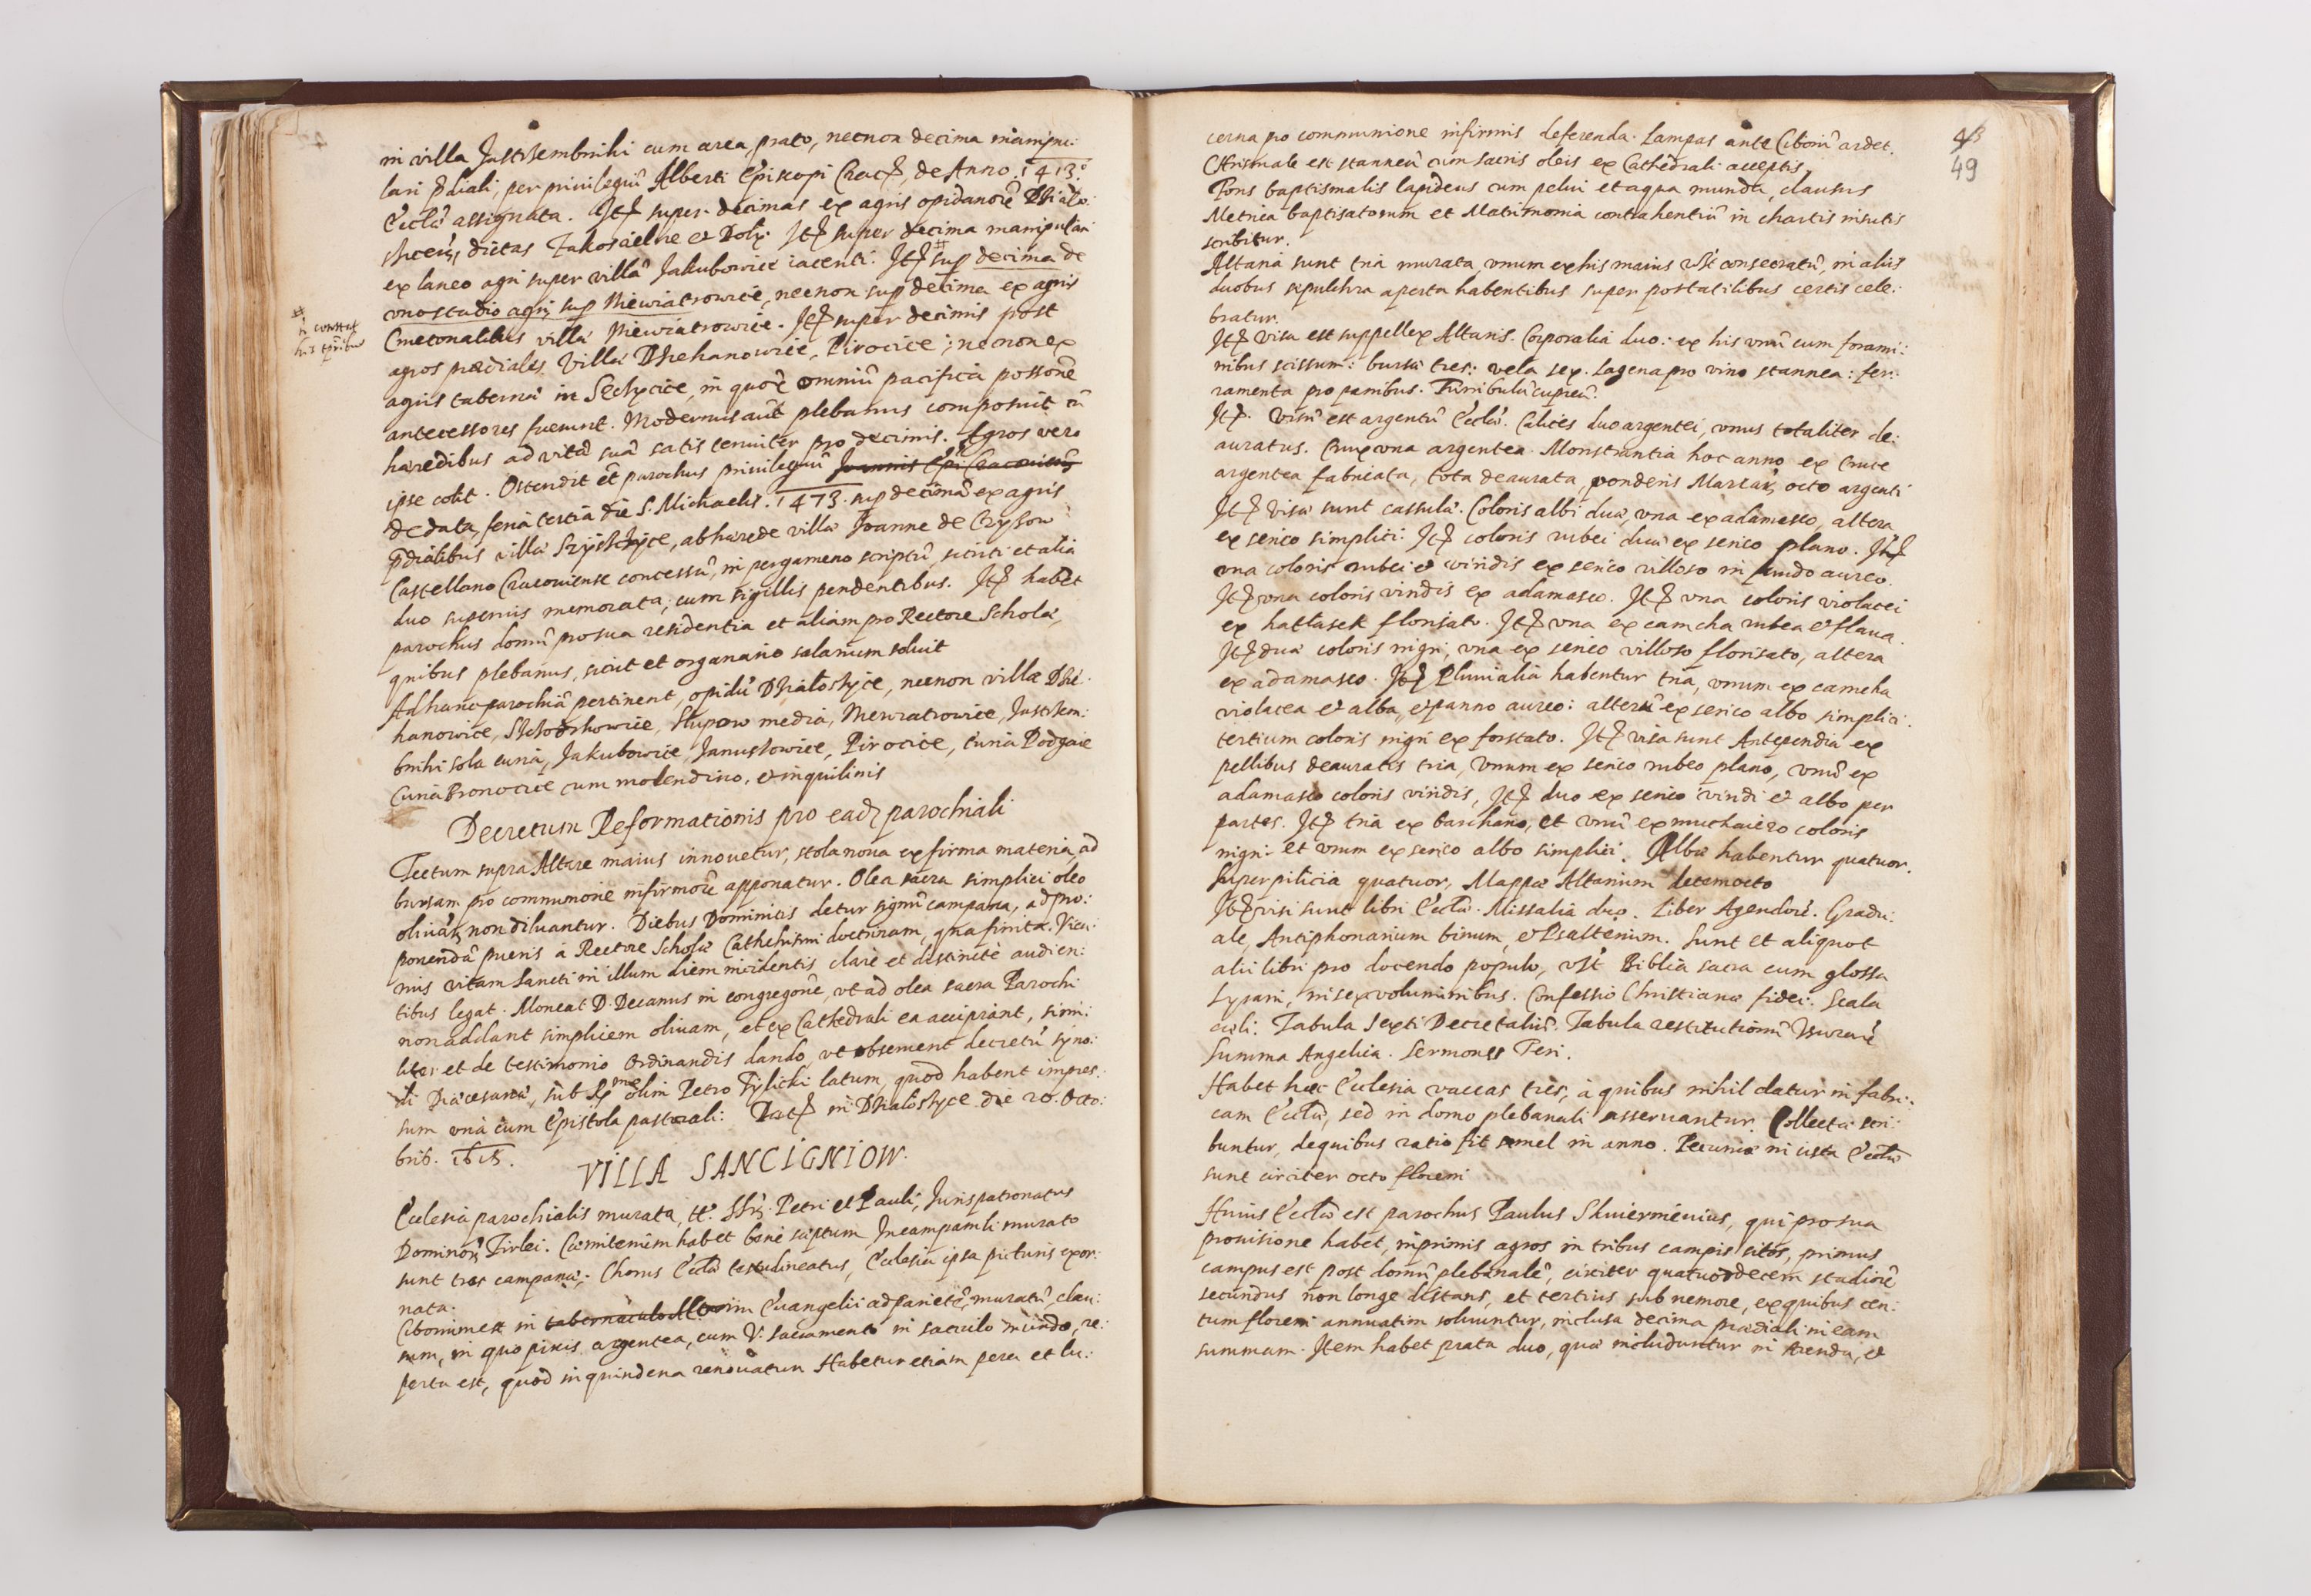 in villa Jastrzembniki cum area, prato, necnon decima manipu:
lari p̄diali, per privilegiū Alberti Episcopi Crac̄, de Anno. 1413.
Ecclæ̂ assignata. Itē super decimas ex agris opidanorē Dzialo:
szicen̄, dictas Zakosciel̄ne et Doly. Itē super decima manipulari
ex laneo agri super villâ Jakubowice iacenti. Itē # sup decima de
uno stadio agri sup Niewiatrowice, necnon sup decima ex agris
# ñ constat
his tp̄ribus
Cmetonalibus villæ Niewiatrowice. Itē super decimis post
agros prædiales villæ Dziekanowice, Pirocice; necnon ex
agris tabernæ in Sędzycice, in quorē omniū pacifica possōne
antecessores fuerunt. Modernus aūt plebanus composuit cū
hæredibus ad vitā suā satis tenuiter pro decimis. Agros vero
ipse colit. Ostendit et̄ parochus privilegiū Joannis Ep̄i Cracoviēn̄
de data feria tertia die S. Michaelis. 1473. sup decimâ ex agris
p̄dialibus villæ Szyszczyce, ab hærede villæ Joanne de Czyżow
Castellano Cracoviense concessū, in pergameno scriptū, sicuti et alia
duo superius memorata, cum sigillis pendentibus. Itē habet
parochus domū pro sua residentia et aliam pro Rectore Scholæ,
quibus plebanus, sicut et organario salarium soluit
Ad hanc parochiā pertinent, opidū Dzialoszyce, necnon villæ Dzie
hanowice, Szczotkowice, Slupow media, Niewiatrowice, Jastrzem:
bniki sola curia, Jakubowice, Januszowice, Pirocice, Curia Podgaie
Curia Bronocice cum molendino, et inquilinis
Decretum Reformationis pro eadȝ parochiali
Tectum supra Altare maius innouetur, stola noua ex firma materia, ad
bursam pro communione infirmorē apponatur. Olea sacra simplici oleo
oliuarȝ non diluantur. Diebus Dominicis detur signū campana, ad pro:
ponendā pueris à Rectore Scholæ Cathehismi doctrinam, qua finita. Vica:
rius vitam Sancti in illum diem incidentis clarè et distinctè audien:
tibus legat. Moneat D. Decanus in congregōne, ut ad olea sacra Parochi
non addant simplicem oliuam, et ex Cathedrali ea accipiant, simi:
liter et de testimonio Ordinandis dando, ut obseruent decretū syno:
di Diæcesanæ, sub Rme olim Petro Tylicki latum, quod habent impres:
sum unà cum Epistola pastorali. Datē in Dzialoszyce die 20. Octo:
bris. 1618.
VILLA SANCIGNIOW.
Ecclesia parochialis murata, tt. SSrȝ. Petri et Pauli, Juris patronatus
Dominorȝ Firlei. Cæmiterium habet bene sæptum In campanili murato
sunt tres campanæ. Chorus Ecclæ testudineatus, Ecclesia ipsa picturis exor:
nata.
Ciborium est in tabernaculo Altaris in Euangelii ad parietē, muratū, clau:
sum, in quo pixis argentea, cum V. sacramento in sacculo mundo, re:
perta est, quod in quindena renouatur. Habetur etiam pera et lu:
48
49
cerna pro communione infirmis deferenda. Lampas ante Ciboriū ardet.
Chrismale est stanneū cum sacris oleis ex Cathedrali acceptis
Fons baptismalis lapideus cum pelui et aqua munda, clausus
Metrica baptisatorum et Matrimonia contrahentiū in chartis insutis
scribitur.
Altaria sunt tria murata, unum ex his maius vst consecratū, in aliis
duobus sepulchra aperta habentibus super portatilibus certis cele:
bratur.
Itē visa est suppellex Altaris. Corporalia duo: ex his unū cum forami:
nibus scissum: bursæ tres: vela sex. Lagena pro vino stannea: fer:
ramenta pro panibus. Turribulū cupreū.
Itē. Visū est argentū Ecclæ. Calices duo argentei, unus totaliter de:
auratus. Crux una argentea. Monstrantia hoc anno ex Cruce
argentea fabricata, tota deaurata, ponderis Marcarȝ octo argenti
Itē visæ sunt cassulæ. Coloris albi duæ, una ex adamasco, altera
ex serico simplici. Itē coloris rubei duæ ex serico plano. Itē
una coloris rubei et viridis ex serico villoso in fundo aureo.
Itē una coloris viridis ex adamasco. Itē una coloris violacei
ex hatłasek florisato. Itē una ex camcha rubea et flaua.
Itē duæ coloris nigri, una ex serico villoso florisato, altera
ex adamasco. Itē Pluuialia habentur tria, unum ex camcha
violacea et alba, et panno aureo: alterū ex serico albo simplici.
tertium coloris nigri ex forstato. Itē visa sunt Antependia ex
pellibus deauratis tria, unum ex serico rubeo plano, unū ex
adamasco coloris viridis, Itē duo ex serico viridi et albo per
partes. Itē tria ex barchano, et unū ex muchaiero coloris
nigri. et unum ex serico albo simplici. Albæ habentur quatuor.
Superpilicia quatuor, Mappæ Altarium decemocto
Itē visi sunt libri Ecclæ. Missalia duo. Liber Agendorē. Gradu:
ale, Antiphonarium binum, et Psalterium. Sunt et aliquot
alii libri pro docendo populo, vst Biblia sacra cum glossa
Lyrani, in sex voluminibus. Confessio Christianæ fidei. Scala
cœli. Tabula sexti Decretaliū. Tabula restitutionū Vsurarē
Summa Angelica. Sermones Feri.
Habet hæc Ecclesia vaccas tres, à quibus nihil datur in fabri:
cam Ecclæ, sed in domo plebanali asseruantur. Collecta scri:
buntur, de quibus ratio fit semel in anno. Pecuniæ in cista Ecclæ
sunt circiter octo floreni
Huius Ecclæ est parochus Paulus Skwierinenius, qui pro sua
prouisione habet, inprimis agros in tribus campis sitos, primus
campus est post domū plebanalē, circiter quatuordecem stadiorē
secundus non longe distans, et tertius sub nemore, ex quibus cen:
tum floreni annuatim soluuntur, inclusa decima prædiali in eam
summam. Item habet prata duo, quæ includuntur in Arenda, et